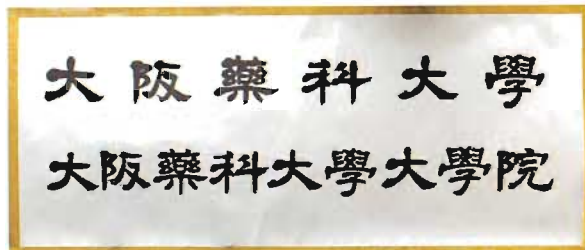 大阪藥科大學
大阪藥科大學大學院